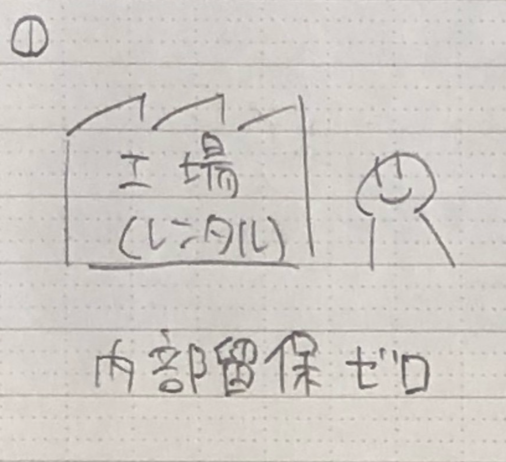 ①
工場
(レンタル)
内部留保ゼロ